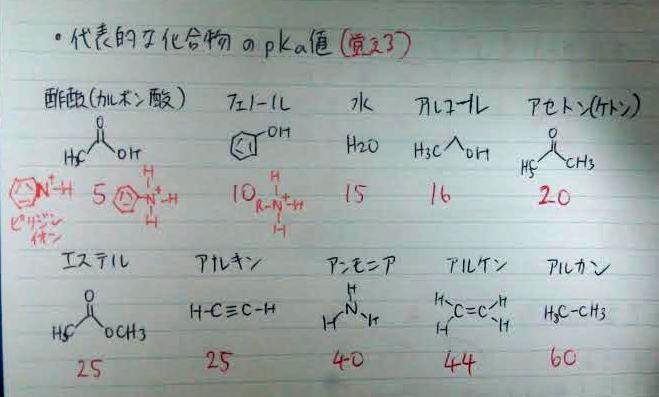 ・代表的な化合物のpKa値(覚える)
酢酸(カルボン酸) フェノール 水 アルコール アセトン(ケトン)
O OH O
H3C OH H2O H3C OH H3C CH3
N+-H 5 H N+-H H 10 H R-N+-H H 15 16 20
ピリジン
イオン
エステル アルキン アンモニア アルケン アルカン
O H-C≡C-H H N H H H C=C H H H H3C-CH3
H3C OCH3
25 25 40 44 60